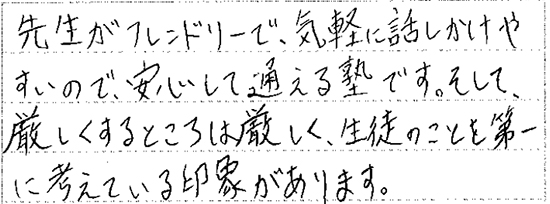 先生がフレンドリーで、気軽に話しかけや
すいので、安心して通える塾です。そして、
厳しくするところは厳しく、生徒のことを第一
に考えている印象があります。